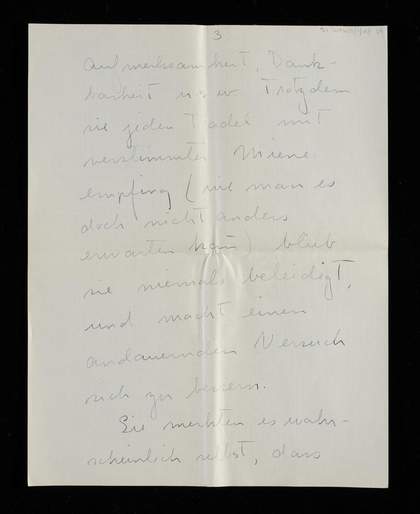 3
Aufmerksamkeit, Dank-
barkeit usw Trotzdem
sie jeden Tadel mit
verstimmter Miene
empfing (wie man es
doch nicht anders
erwarten kann) blieb
sie niemals beleidigt,
und macht einen
andauernden Versuch
sich zu bessern.
Sie merkten es wahr-
scheinlich selbst, dass